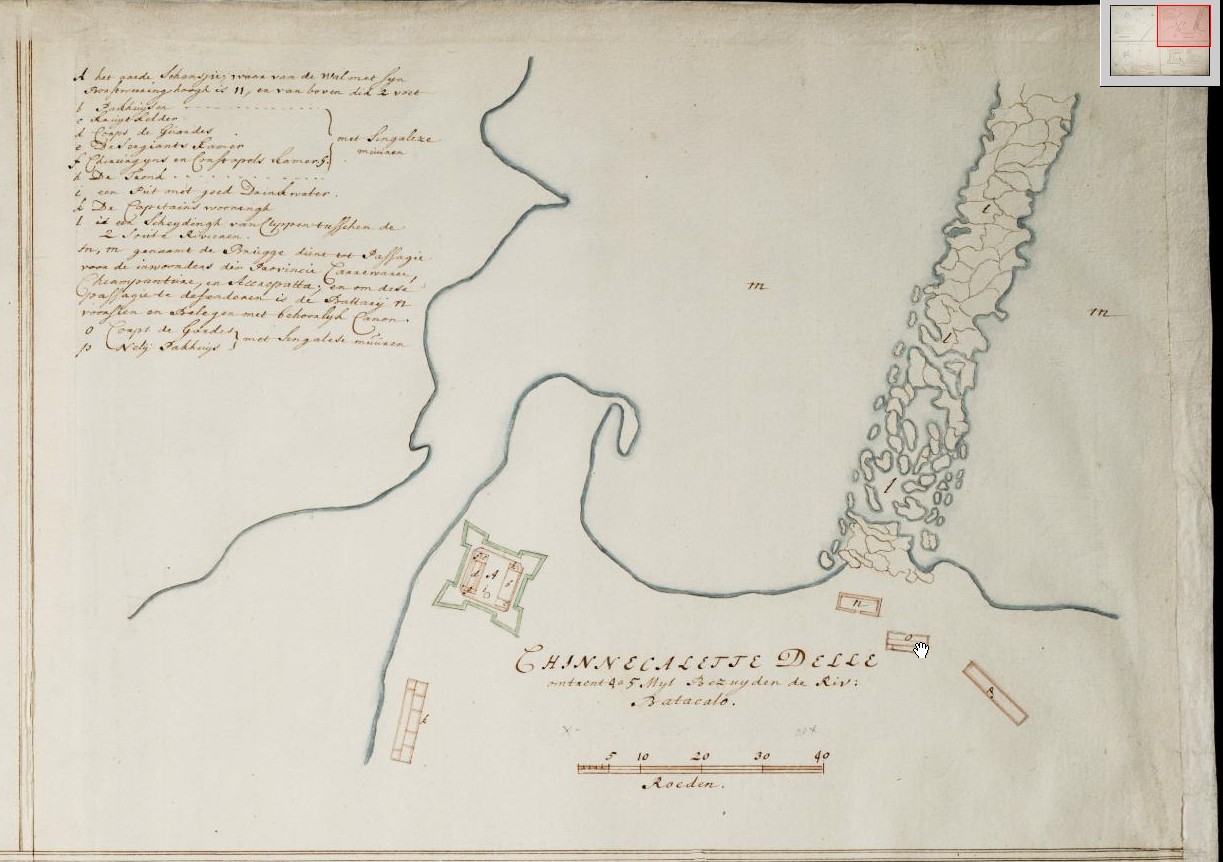 A het aarde Schansjie; waar van de Wal met syn
Borstweeringh hoogh is 11, en van boven dik 2 voet
b Pakhuysen
c Kruyt kelder
d Corps de Guardes
e De Sergiants Kamer
f Chirurgyns en Constapels Kamers
met Singaleze
muüren
h De Tronk
i een Put met goed Drinkwater.
k De Capitains wooningh
l is een Scheydingh van Clippen tusschen de
2 Soute Rivieren.
m, m genaamt de Brugge dient tot Passagie
voor de inwoonders der Provincie
en Accrepatta; en om dese
passagie te defenderen is de Battarij n
voorsien en Belegen met behoorlyk Canon.
o Corps de Guardes
p Nely Pakhuys
met Singalese muüren
l
m
m
l
l
A
b
n
o
k
CHINNECALETTE DELLE
omtrent 4 a 5 Myl Bezuyden de Riv:
Batacalo.
5 10 20 30 40
Roeden.